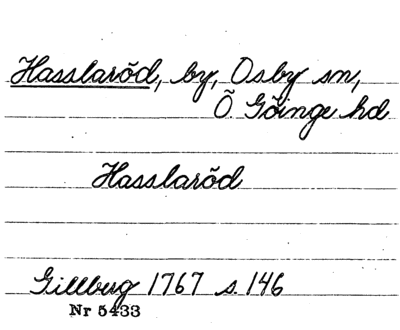 Hasslaröd, by, Osby sn,
Ö Göinge hd
Hasslaröd
Gillberg 1767 s. 146
Nr 5433